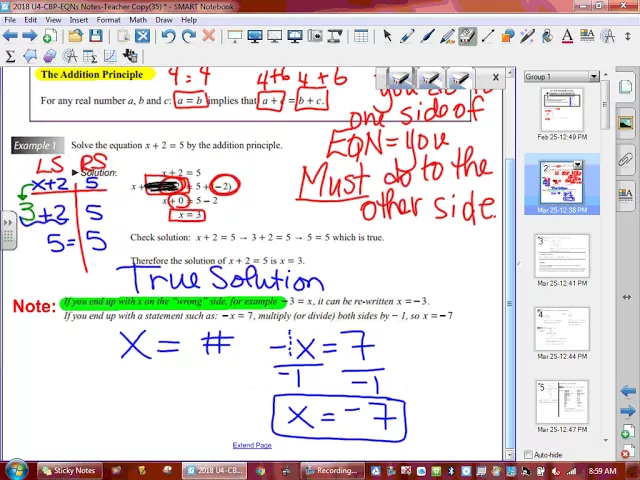 2018 U4-CBP-EQNs Notes-Teacher Copy(35) * - SMART Notebook
File Edit View Insert Format Tools Math Draw Help
Group 1
The Addition Principle
4 = 4
4+6 4+6
For any real number a, b and c: a = b implies that a + = b + c.
one side of
EQN = you
Must do to the
other side.
Example 1 Solve the equation x + 2 = 5 by the addition principle.
LS RS
Solution: x + 2 = 5
x+2 5
= 5 + (−2)
3 + 2 5
x + 0 = 5 − 2
x = 3
5 = 5
Check solution: x + 2 = 5 → 3 + 2 = 5 → 5 = 5 which is true.
Therefore the solution of x + 2 = 5 is x = 3.
True Solution
Note: If you end up with x on the "wrong" side, for example −3 = x, it can be re-written x = −3.
If you end up with a statement such as: −x = 7, multiply (or divide) both sides by − 1, so x = −7
X = #
-1x = 7
-1 -1
x = -7
Extend Page
Feb 25-12:49 PM
2
Mar 25-12:38 PM
3
Mar 25-12:43 PM
4
Mar 25-12:44 PM
5
Mar 25-12:47 PM
Auto-hide
Sticky Notes
2018 U4-CBP-EQN...
Recording...
8:59 AM